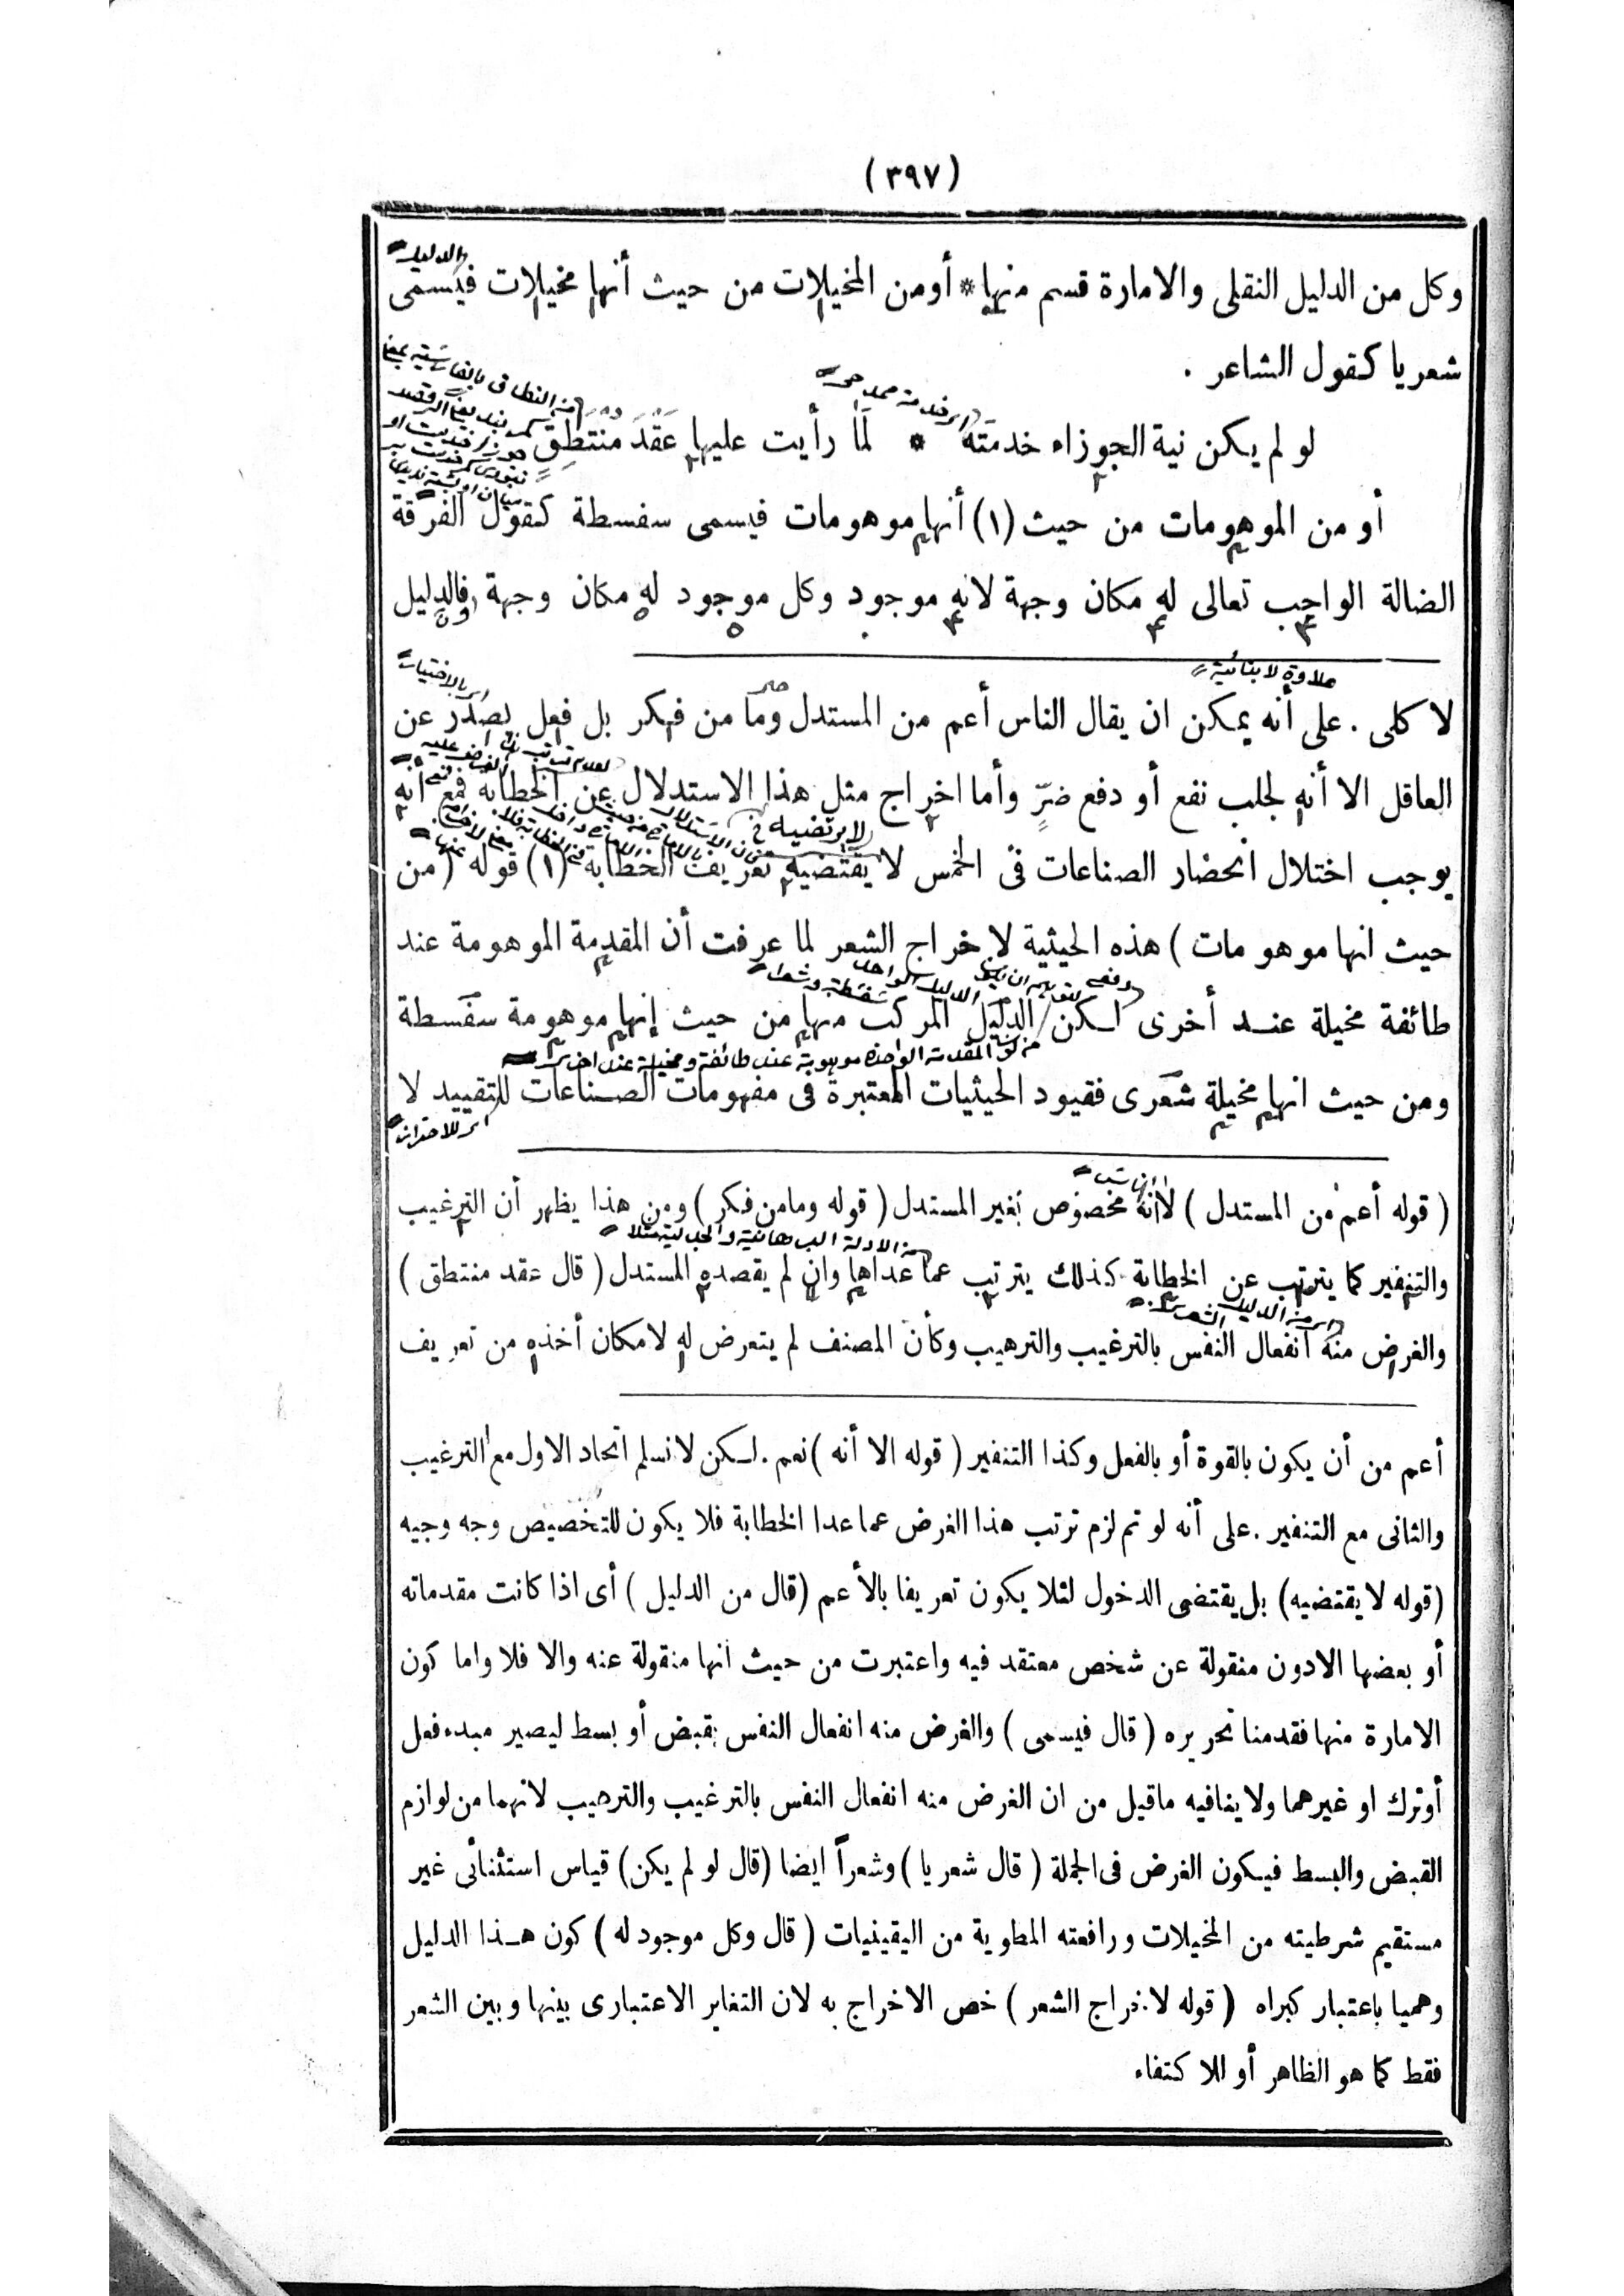 (٣٩٧)
وكل من الدليل النقلى والامارة قسم منها * أومن المخيلات من حيث أنها مخيلات فيسمى
شعريا كقول الشاعر .
لو لم يكن نية الجوزاء خدمته * لما رأيت عليها عقد منتطق
أو من الموهومات من حيث (١) أنها موهومات فيسمى سفسطة كقول الفرقة
الضالة الواجب تعالى له مكان وجهة لانه موجود وكل موجود له مكان وجهة فالدليل
علاوة لا بنائية
لا كلى . على أنه يمكن ان يقال الناس أعم من المستدل وما من فكر بل فعل يصدر عن
العاقل الا أنه لجلب نفع أو دفع ضرٍّ وأما اخراج مثل هذا الاستدلال عن الخطابة فمع أنه
يوجب اختلال انحضار الصناعات فى الخمس لا يقتضيه تعريف الخطابة (١) قوله (من
حيث انها موهومات) هذه الحيثية لاخراج الشعر لما عرفت أن المقدمة الموهومة عند
طائفة مخيلة عند أخرى لكن الدليل المركب منها من حيث إنها موهومة سفسطة
ومن حيث انها مخيلة شعرى فقيود الحيثيات المعتبرة فى مفهومات الصناعات للتقييد لا
(قوله أعم من المستدل) لانه مخصوص بغير المستدل (قوله ومامن فكر) ومن هذا يظهر أن الترغيب
والتنفير كما يترتب عن الخطابة كذلك يترتب عما عداها وان لم يقصده المستدل (قال عقد منتطق)
والغرض منه انفعال النفس بالترغيب والترهيب وكأن المصنف لم يتعرض له لامكان أخذه من تعريف
أعم من أن يكون بالقوة أو بالفعل وكذا التنفير (قوله الا أنه) نعم . لكن لانسلم اتحاد الاول مع الترغيب
والثانى مع التنفير . على أنه لو تم لزم ترتب هذا الغرض عماعدا الخطابة فلا يكون للتخصيص وجه وجيه
(قوله لا يقتضيه) بل يقتضى الدخول لئلا يكون تعريفا بالأعم (قال من الدليل) أى اذا كانت مقدماته
أو بعضها الادون منقولة عن شخص معتقد فيه واعتبرت من حيث انها منقولة عنه والا فلا واما كون
الامارة منها فقدمنا تحريره (قال فيسمى) والغرض منه انفعال النفس بقبض أو بسط ليصير مبدء فعل
أوترك او غيرهما ولا ينافيه ماقيل من ان الغرض منه انفعال النفس بالترغيب والترهيب لانهما من لوازم
القبض والبسط فيكون الغرض فى الجملة (قال شعريا) وشعراً ايضا (قال لو لم يكن) قياس استثنائى غير
مستقيم شرطيته من المخيلات ورافعته المطوية من اليقينيات (قال وكل موجود له) كون هذا الدليل
وهميا باعتبار كبراه (قوله لاخراج الشعر) خص الاخراج به لان التغاير الاعتبارى بينها وبين الشعر
فقط كما هو الظاهر أو للاكتفاء